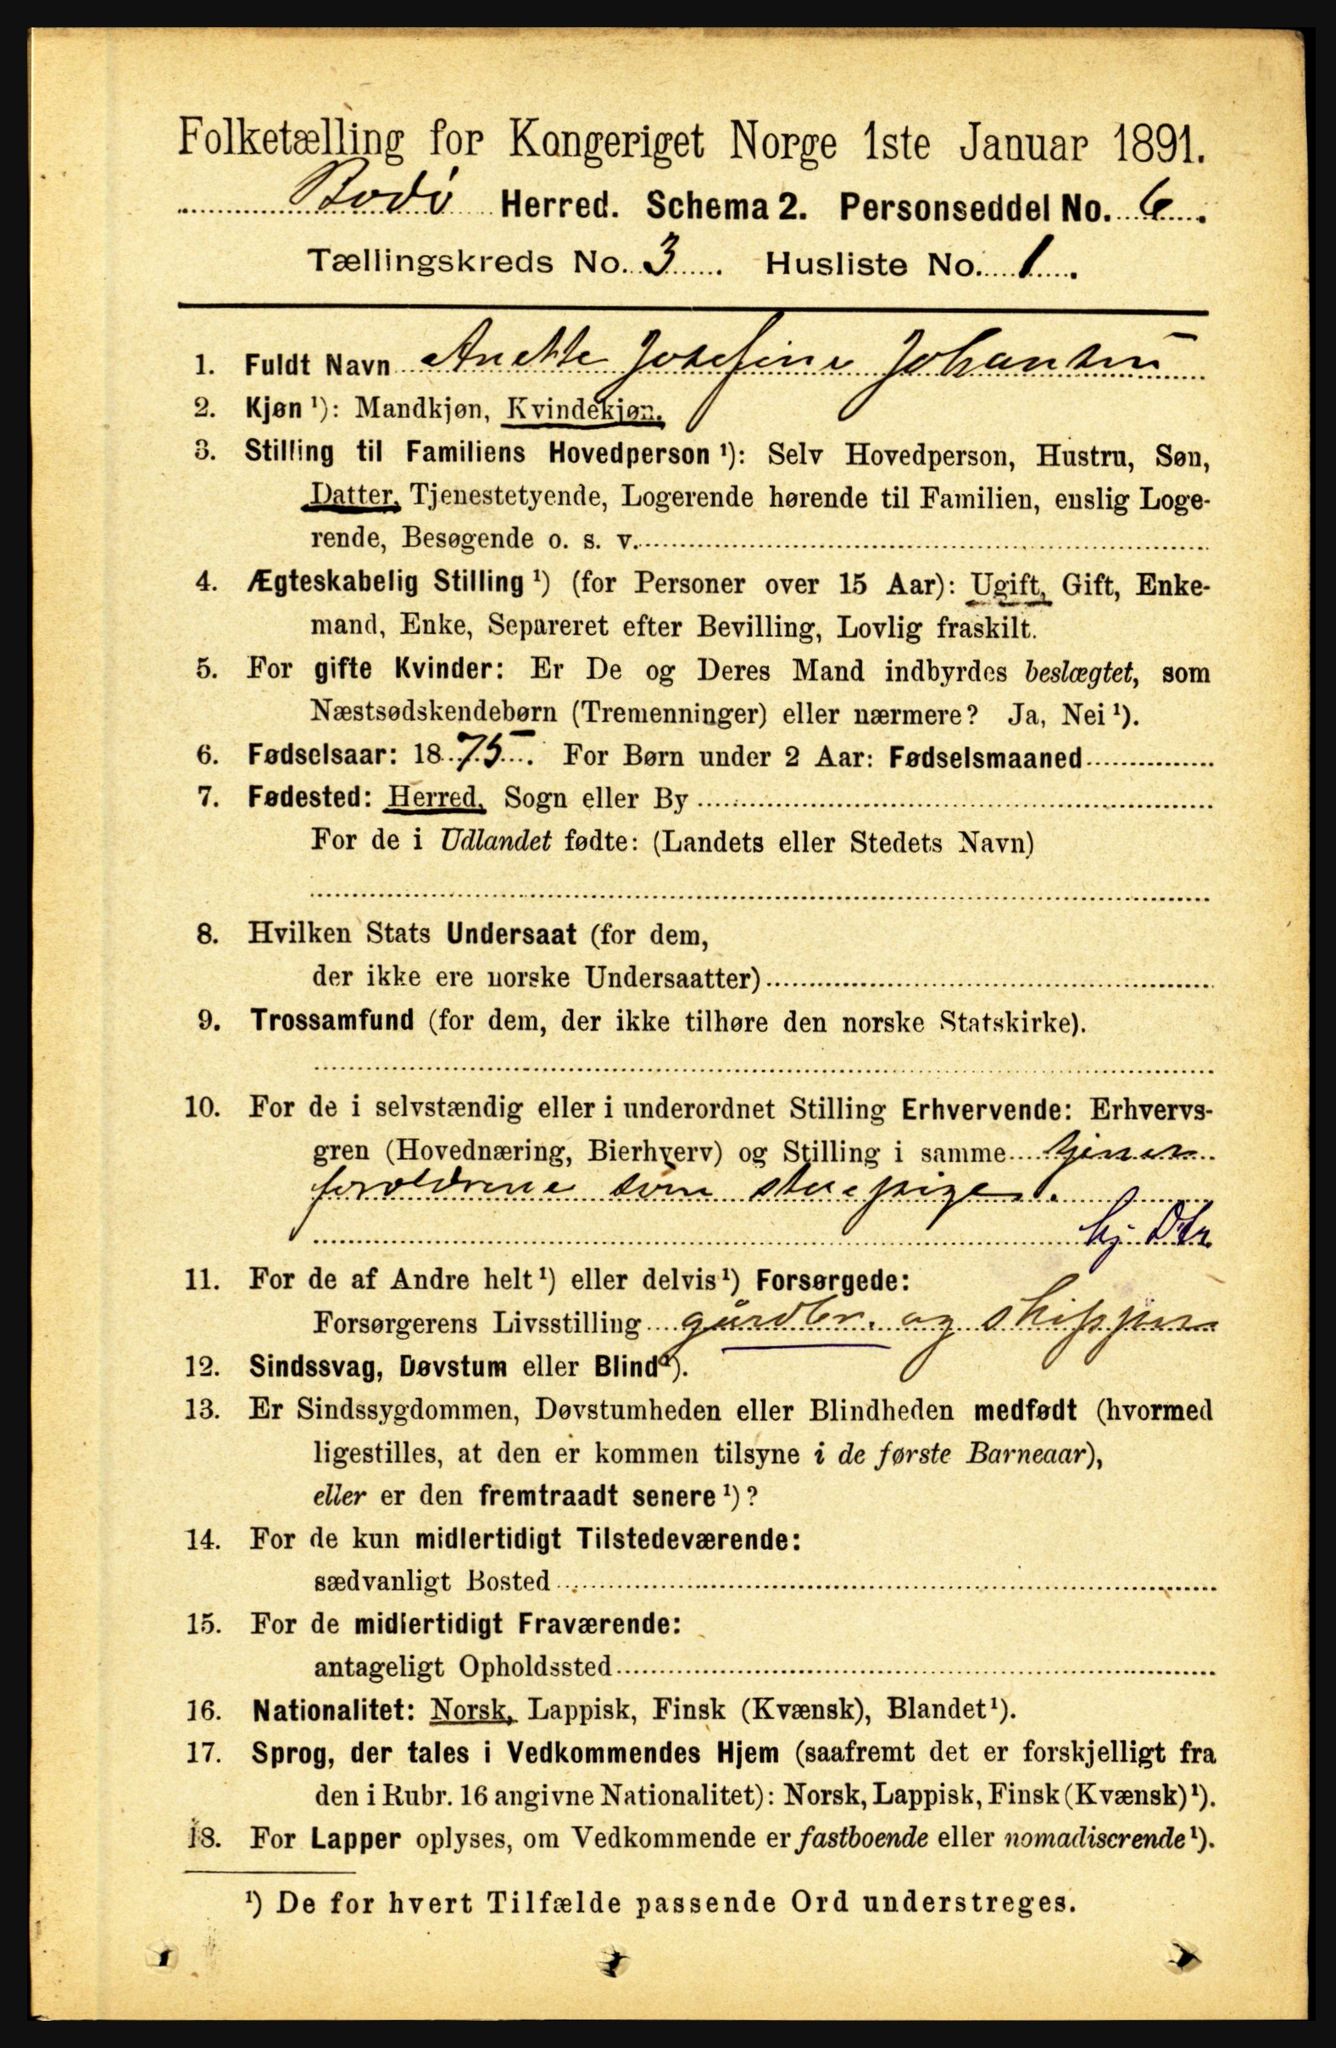 Folketælling for Kongeriget Norge 1ste Januar 1891.
Bodø Herred. Schema 2. Personseddel No. 6.
Tællingskreds No. 3. Husliste No. 1.
1. Fuldt Navn Anette Josefine Johansen
2. Kjøn¹): Mandkjøn, Kvindekjøn.
3. Stilling til Familiens Hovedperson¹): Selv Hovedperson, Hustru, Søn,
Datter, Tjenestetyende, Logerende hørende til Familien, enslig Loge-
rende, Besøgende o. s. v.
4. Ægteskabelig Stilling¹) (for Personer over 15 Aar): Ugift, Gift, Enke-
mand, Enke, Separeret efter Bevilling, Lovlig fraskilt.
5. For gifte Kvinder: Er De og Deres Mand indbyrdes beslægtet, som
Næstsødskendebørn (Tremenninger) eller nærmere? Ja, Nei¹).
6. Fødselsaar: 1875. For Børn under 2 Aar: Fødselsmaaned
7. Fødested: Herred, Sogn eller By
For de i Udlandet fødte: (Landets eller Stedets Navn)
8. Hvilken Stats Undersaat (for dem,
der ikke ere norske Undersaatter)
9. Trossamfund (for dem, der ikke tilhøre den norske Statskirke).
10. For de i selvstændig eller i underordnet Stilling Erhvervende: Erhvervs-
gren (Hovednæring, Bierhverv) og Stilling i samme tjener
forældrene som stuepige.
hj. Dtr
11. For de af Andre helt¹) eller delvis¹) Forsørgede:
Forsørgerens Livsstilling gårdbr. og skipper
12. Sindssvag, Døvstum eller Blind¹).
13. Er Sindssygdommen, Døvstumheden eller Blindheden medfødt (hvormed
ligestilles, at den er kommen tilsyne i de første Barneaar),
eller er den fremtraadt senere¹)?
14. For de kun midlertidigt Tilstedeværende:
sædvanligt Bosted
15. For de midlertidigt Fraværende:
antageligt Opholdssted
16. Nationalitet: Norsk, Lappisk, Finsk (Kvænsk), Blandet¹).
17. Sprog, der tales i Vedkommendes Hjem (saafremt det er forskjelligt fra
den i Rubr. 16 angivne Nationalitet): Norsk, Lappisk, Finsk (Kvænsk)¹).
18. For Lapper oplyses, om Vedkommende er fastboende eller nomadiserende¹).
¹) De for hvert Tilfælde passende Ord understreges.